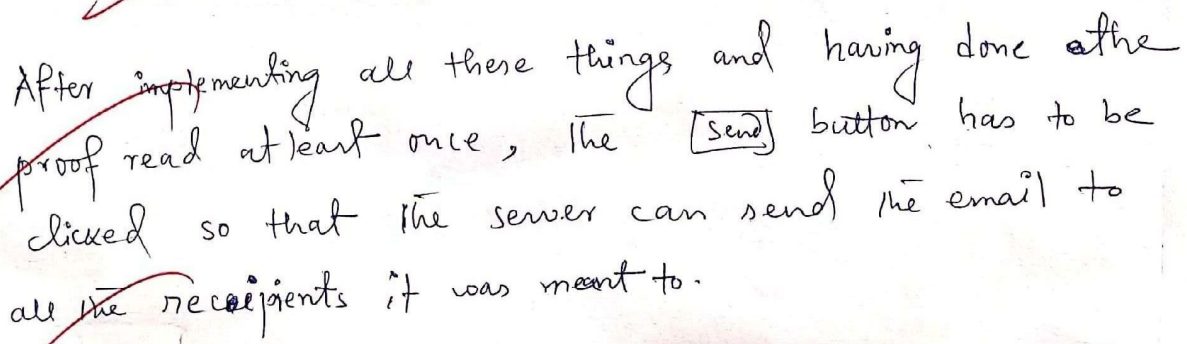 After implementing all these things and having done the
proof read at least once, the send button has to be
clicked so that the server can send the email to
all the receipients it was meant to.